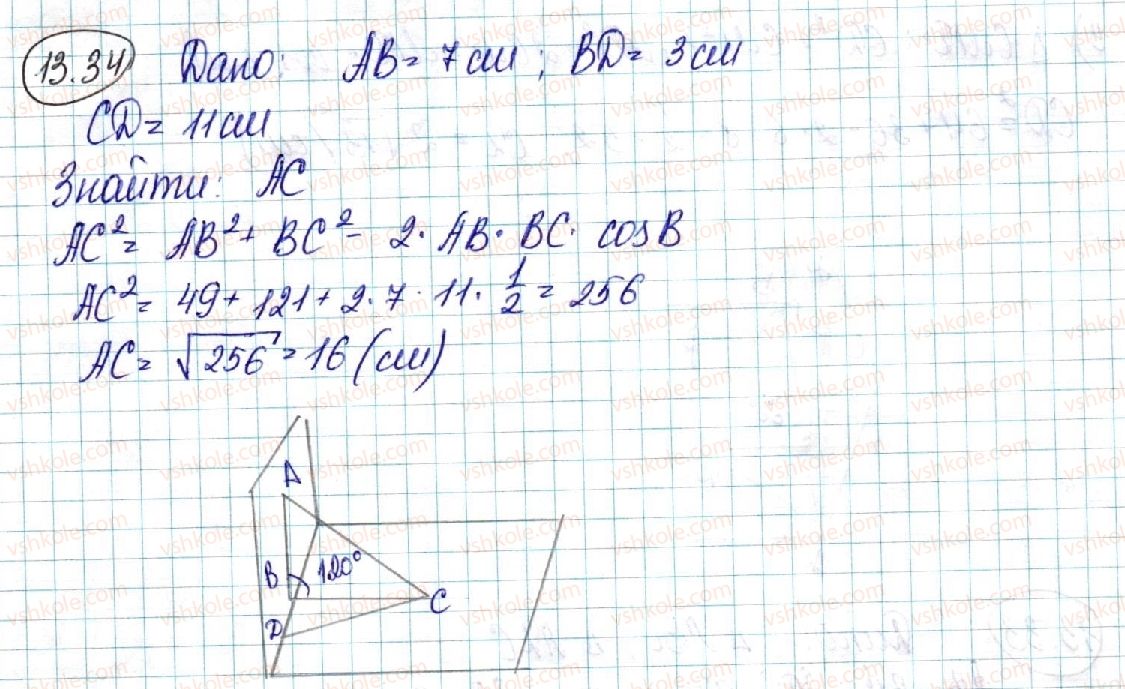 13.34 Дано: AB = 7 см ; BD = 3 см
CD = 11 см
Знайти: AC
AC² = AB² + BC² - 2 · AB · BC · cosB
AC² = 49 + 121 + 2 · 7 · 11 · 1/2 = 256
AC = √256 = 16 (см)
A
B 120°
C
D